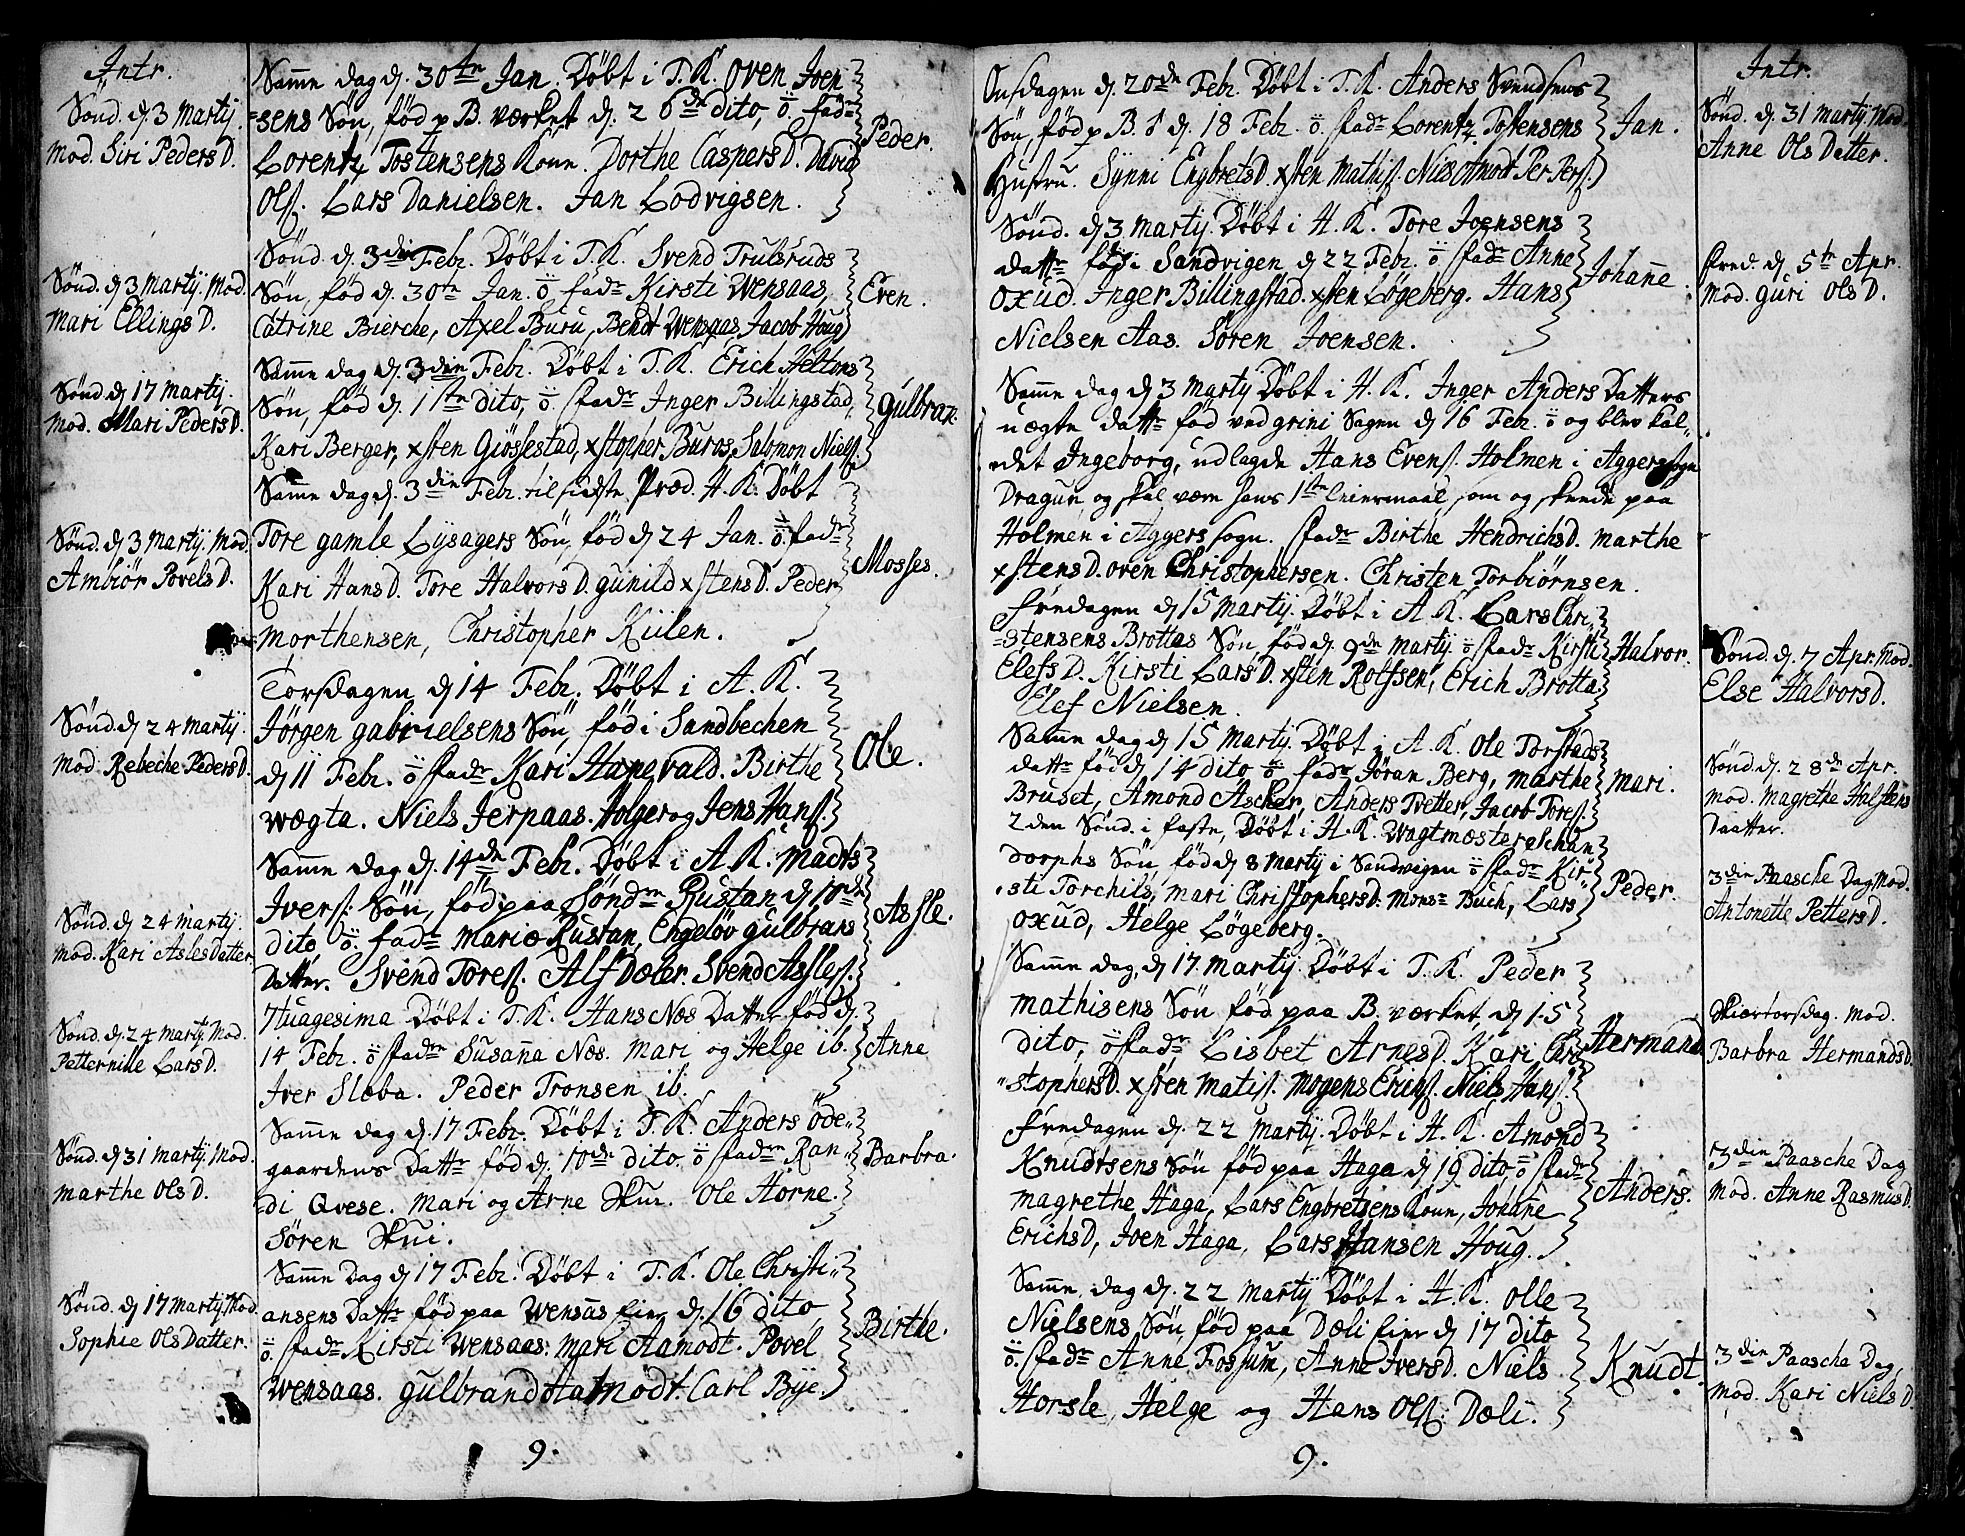 Intr.
Sönd. d. 3 Martij.
Mod. Siri Peders D.
Sönd. d. 3 Martij. Mod.
Mari Ellings D.
Sönd. d. 17 Martij.
Mod. Mari Peders D.
Sönd. d. 3 Martij. Mod.
Ambiör Povels D.
Sönd. d. 24 Martij.
Mod. Rebeche Peders D.
Sönd. d. 24 Martij.
Mod. Kari Asles Datter
Sönd. d. 24 Martij. Mod.
Petternille Lars D.
Sönd. d. 31 Martij. Mod.
Marthe Ols D.
Sönd. d. 17 Martij. Mod.
Sophie Ols Datter.
Samme dag d. 30te Jan. Döbt i T. K. Oven Joen
=sens Sön, föd p B. værket d. 26de dito, ö. fadr
Lorentz Tostensens Kone. Dorthe Caspers D. David
Olß. Lars Danielsen. Jan Lodvigsen.
Peder.
Sönd. d. 3die Febr. Döbt i T. K. Svend Trulsruds
Sön, föd d. 30te Jan. ö fadr Kirsti Wensaas,
Catrine Bierche, Axel Buru, Bendt Wensaas, Jacob Houg
Even.
Samme dag d. 3die Febr. Döbt i T. K. Erich Heltons
Sön, föd d. 1ste dito, ö. fadr Inger Billingstad,
Kari Berger, xsten Giössestad, xstopher Buros, Salomon Nielß.
Gulbran.
Samme dag d. 3die Febr. til sidste Præd. H. K. Döbt
Tore gamle Lysagers Sön, föd d. 24 Jan. ö. fadr
Kari Hans D. Tore Halvors D. Gunild xstens D. Peder
Morthensen, Christopher Kiilen.
Mosses.
Torsdagen d. 14 Febr. Döbt i A. K.
Jörgen Gabrielsens Sön, föd i Sandbechen
d. 11 Febr. ö fadr Kari Hanevald. Birthe
Wægta. Niels Jerpaas. Holger og Jens Hanß.
Ole.
Samme dag d. 14de Febr. Döbt i A. K. Madts
Iverß. Sön, föd paa Söndre Rustan d. 10de
dito ö. fadr Marie Rustan, Engelöv Gulbrans
Datter. Svend Toreß. Alf Dæler. Svend Aßleß.
Asle.
7tuagesima Döbt i T. K. Hans Næs Datter föd d.
14 Febr. ö fadr Susanna Næs. Mari og Helge ib.
Iver Slæba. Peder Tronsen ib.
Anne
Samme dag d. 17 Febr. Döbt i T. K. Anders Öde=
gaardens Dattr föd d. 10de dito. ö fadr Ran=
di Qvese. Mari og Arne Skui. Ole Horne.
Sören Skui.
Barbra.
Samme Dag d. 17 Febr. Döbt i T. K. Ole Christi=
ansens Dattr föd paa Wensås Eier d. 16 dito,
ö. fadr Kirsti Wensaas. Mari Aamodt. Povel
Wensaas. Gulbrand Aamodt. Carl Bye.
Birthe.
9.
Onsdagen d. 20de Febr. Döbt i T. K. Anders Svendsens
Sön, föd p B. d. 18 Febr. ö. fadr Lorentz Tostensens
Hustru. Synni Engbrets D. xsten Mathiß. Niels Amodt Per Perß.
Jan.
Sönd. d. 3 Martij Döbt i H. K. Tore Joensens
dattr föd i Sandvigen d. 22 Febr. ö fadr Anne
Oxud. Inger Billingstad. xsten Lögeberg. Hans
Nielsen Aas. Sören Joensen.
Johanne.
Samme dag d. 3 Martij Döbt i H. K. Inger Anders Datters
uægte dattr föd ved Grini Sagen d. 16 Febr. ö og blev kal=
=det Ingeborg, udlagde Hans Evenß. Holmen i Aggers Sogn
Dragun, og skal være hans 1ste leiermaal, som og skeede paa
Holmen i Aggers sogn. fadr Birthe Hendrichs D. Marthe
xstens D. Oven Christophersen. Christen Torbiörnsen.
Fredagen d. 15 Martij. Döbt i A. K. Lars Chri=
=stensens Brottas Sön, föd d. 9de Martij ö fadr Kirsti
Elefs D. Kirsti Lars D. xsten Rolfsen, Erich Brotta,
Elef Nielsen.
Halvor.
Samme dag d. 15 Martij Döbt i A. K. Ole Torstads
dattr föd d. 14 dito ö. fadr Jöran Berg, Marthe
Bruset, Amond Ascher, Anders Tvetter, Jacob Toreß.
Mari.
2den Sönd. i faste, Döbt i H. K. Wagtmester Schan
dorphs Sön, föd d. 8 Martij i Sandvigen ö fadr Kir=
sti Torchils, Mari Christophers D. Monsr Buch, Lars
Oxud, Helge Lögeberg.
Peder.
Samme dag, d. 17 Martij. Döbt i T. K. Peder
Mathisens Sön föd paa B. værket, d. 15
dito, ö fadr Lisbet Arnes D. Kari Chri
=stophers D. xsten Matiß. Mogens Erichß. Niels Hanß.
Hermand.
Fredagen d. 22 Martij. Döbt i H. K. Amond
Knudtsens Sön föd paa Haga d. 19 dito ö fadr
Magrethe Haga, Lars Engbretsens Kone, Johane
Erichs D, Joen Haga, Lars Hansen Houg.
Anders.
Samme dag d. 22 Martij Döbt i H. K. Olle
Nielsens Sön föd paa Dæli Eier d. 17 dito
ö. fadr Anne Fossum, Anne Ivers D. Niels
Horsle, Helge og Hans Olß. Dæli.
Knudt.
9.
Intr.
Sönd. d. 31 Martij Mod.
Anne Ols Datter.
Fred. d. 5te Apr.
Mod. Guri Ols D.
Sönd. d. 7 Apr. Mod.
Else Halvors D.
Sönd. d. 28de Apr.
Mod. Magrethe Halstens
Daatter.
3die Paasche Dag Mod.
Antonette Petters D.
Skiærtorsdag. Mod.
Barbra Hermands D.
3die Paasche Dag
Mod. Anne Rasmus D.
3die Paasche Dag
Mod. Kari Niels D.